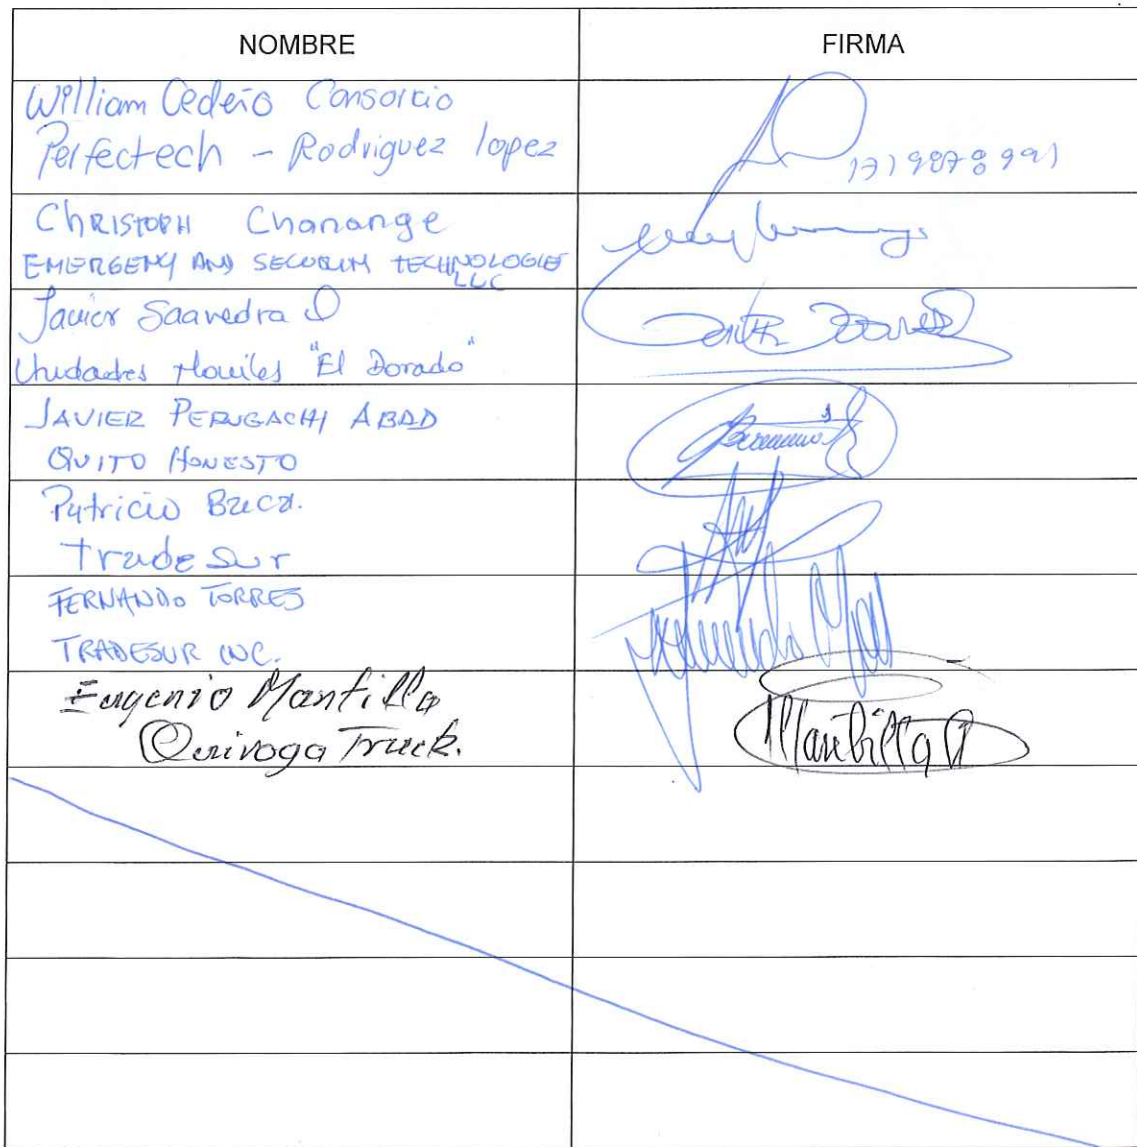 NOMBRE FIRMA
William Cedeño Consorcio
Perfectech - Rodriguez lopez
Christoph Chanange
EMERGENY AND SECURITY TECHNOLOGIES
LLC
Javier Saavedra
Unidades Moviles "El Dorado"
JAVIER PERUGACHI ABAD
QUITO HONESTO
Patricio Baca.
tradeSur
FERNANDO TORRES
TRADESUR INC.
Eugenio Mantilla
Quiroga Truck.
Mantilla